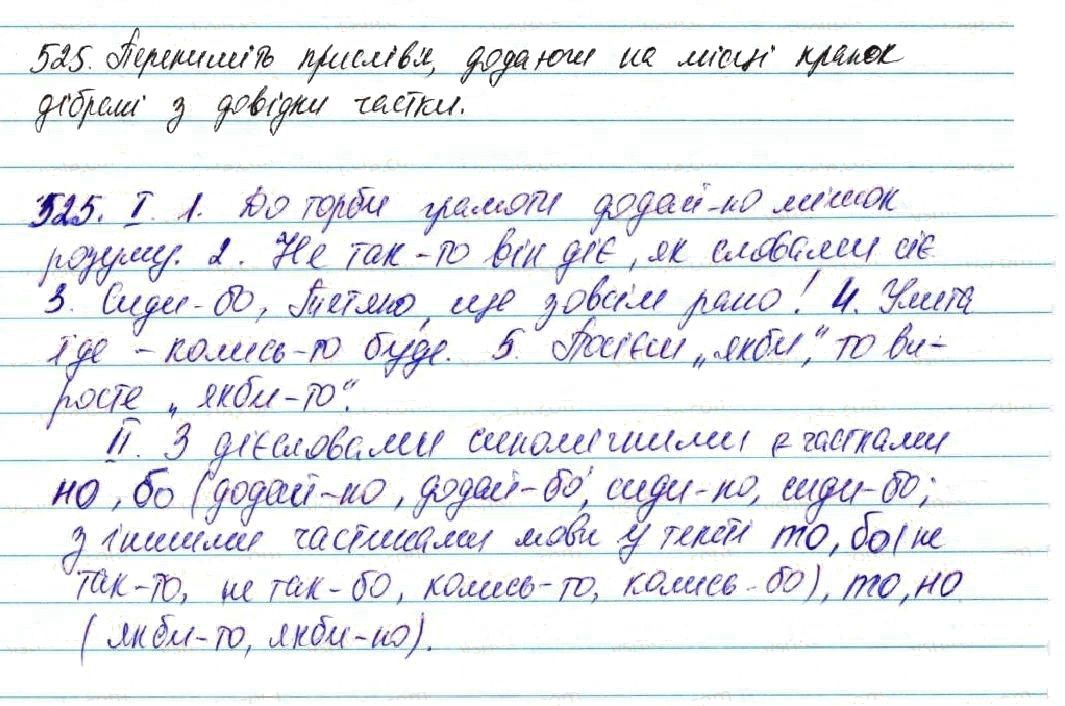 525. Перепишіть прислів'я, додаючи на місці крапок
дібрані з довідки частки.
525. I. 1. До торби грамоти додай-но мішок
розуму. 2. Не так-то він діє, як словами сіє
3. Сиди-бо, Тетяно, ще зовсім рано! 4. Улита
їде - колись-то буде. 5. Посієш „якби", то ви-
росте „якби-то".
II. З дієсловами синонімічними є частками
но, бо (додай-но, додай-бо, сиди-но, сиди-бо;
з іншими частинами мови у тексті то, бо (не
так-то, не так-бо, колись-то, колись-бо), то, но
(якби-то, якби-но).